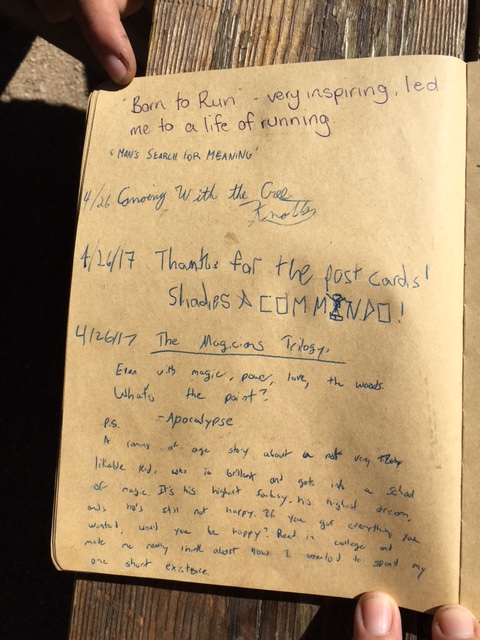 "Born to Run" - very inspiring, led
me to a life of running.
"MAN'S SEARCH FOR MEANING"
4/26 Groovng With the Gee
Knobbs
4/26/17 Thanks for the post cards!
Shades A COMMANDO!
4/26/17 The Magicians Trilogy.
Even with magic, power, love, the woods
What's the point?
-Apocalypse
P.S.
A coming of age story about a not very
likable kid, who is brilliant and gets into a school
of magic. It's his highest fantasy, his highest dream,
and he's still not happy. If you got everything you
wanted, would you be happy? Read in college and
made me really think about how I wanted to spend my
one short existence.